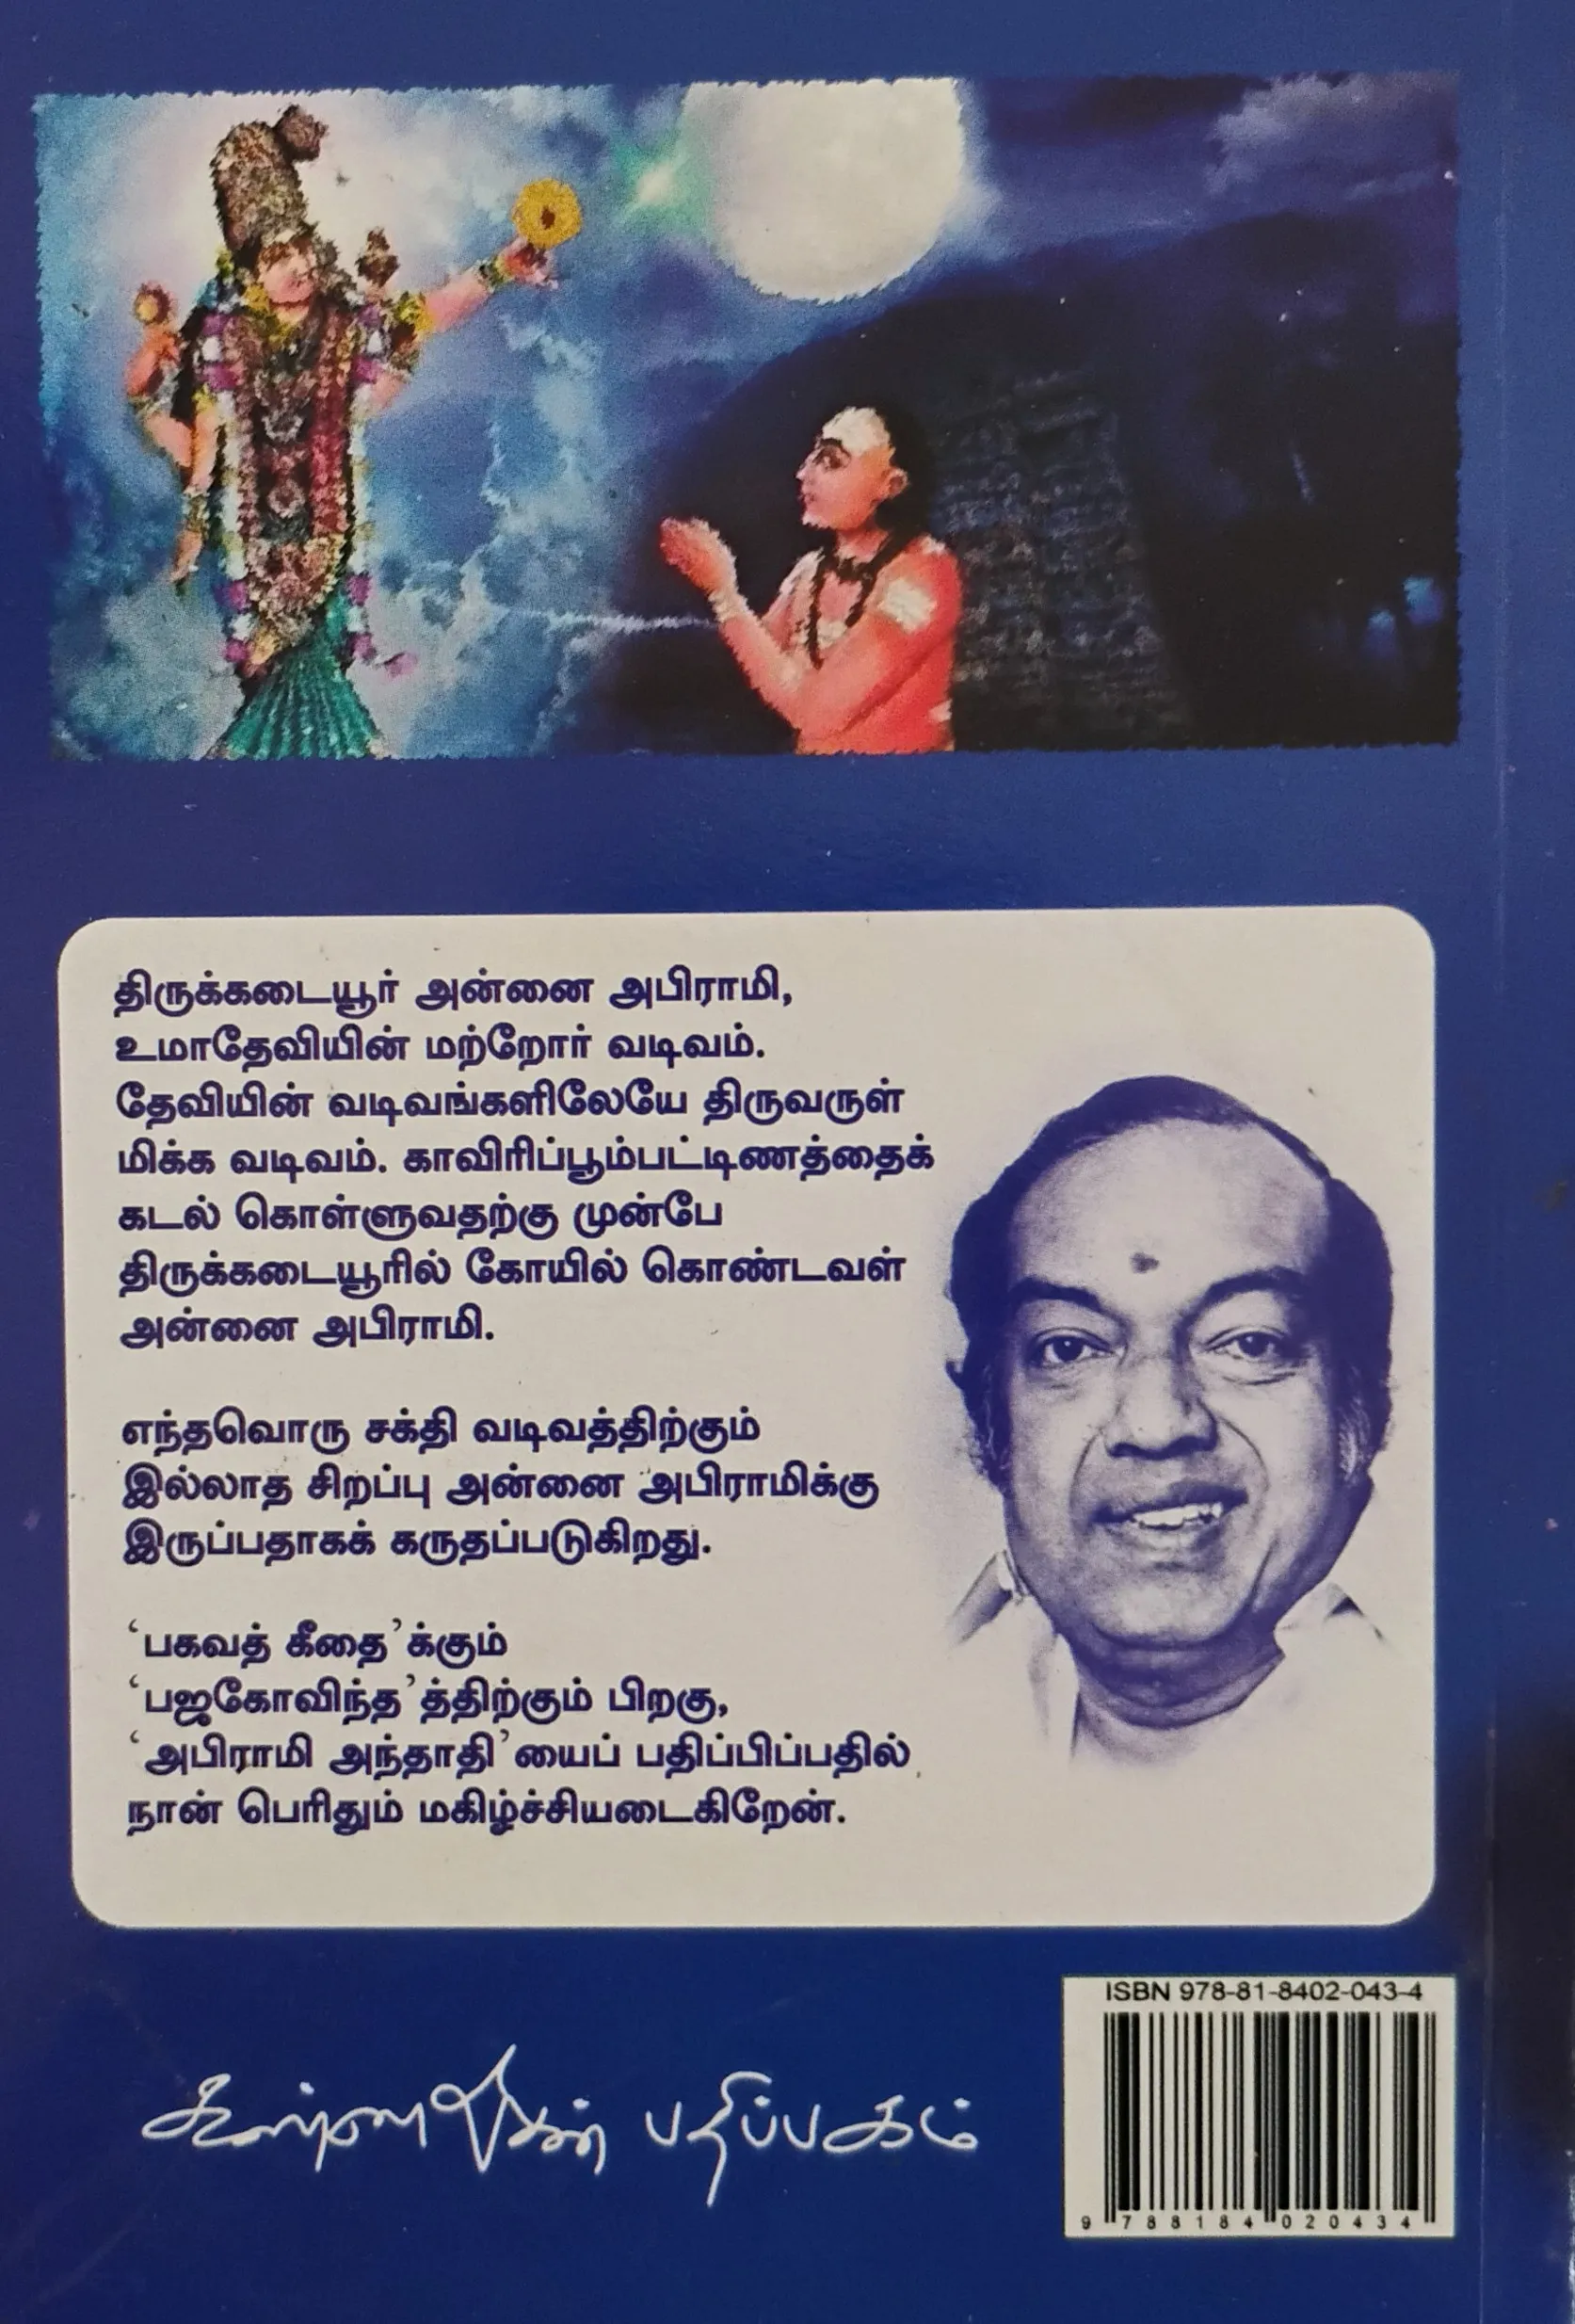 திருக்கடையூர் அன்னை அபிராமி,
உமாதேவியின் மற்றோர் வடிவம்.
தேவியின் வடிவங்களிலேயே திருவருள்
மிக்க வடிவம். காவிரிப்பூம்பட்டிணத்தைக்
கடல் கொள்ளுவதற்கு முன்பே
திருக்கடையூரில் கோயில் கொண்டவள்
அன்னை அபிராமி.
எந்தவொரு சக்தி வடிவத்திற்கும்
இல்லாத சிறப்பு அன்னை அபிராமிக்கு
இருப்பதாகக் கருதப்படுகிறது.
‘பகவத் கீதை’க்கும்
‘பஜகோவிந்த’த்திற்கும் பிறகு,
‘அபிராமி அந்தாதி’யைப் பதிப்பிப்பதில்
நான் பெரிதும் மகிழ்ச்சியடைகிறேன்.
கண்ணதாசன் பதிப்பகம்
ISBN 978-81-8402-043-4
9 788184 020434